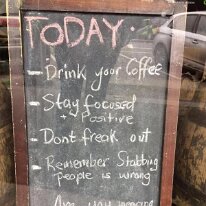 TODAY.
- Drink your Coffee
- Stay focused
+ Positive
- Dont freak out
- Remember Stabbing
people is wrong